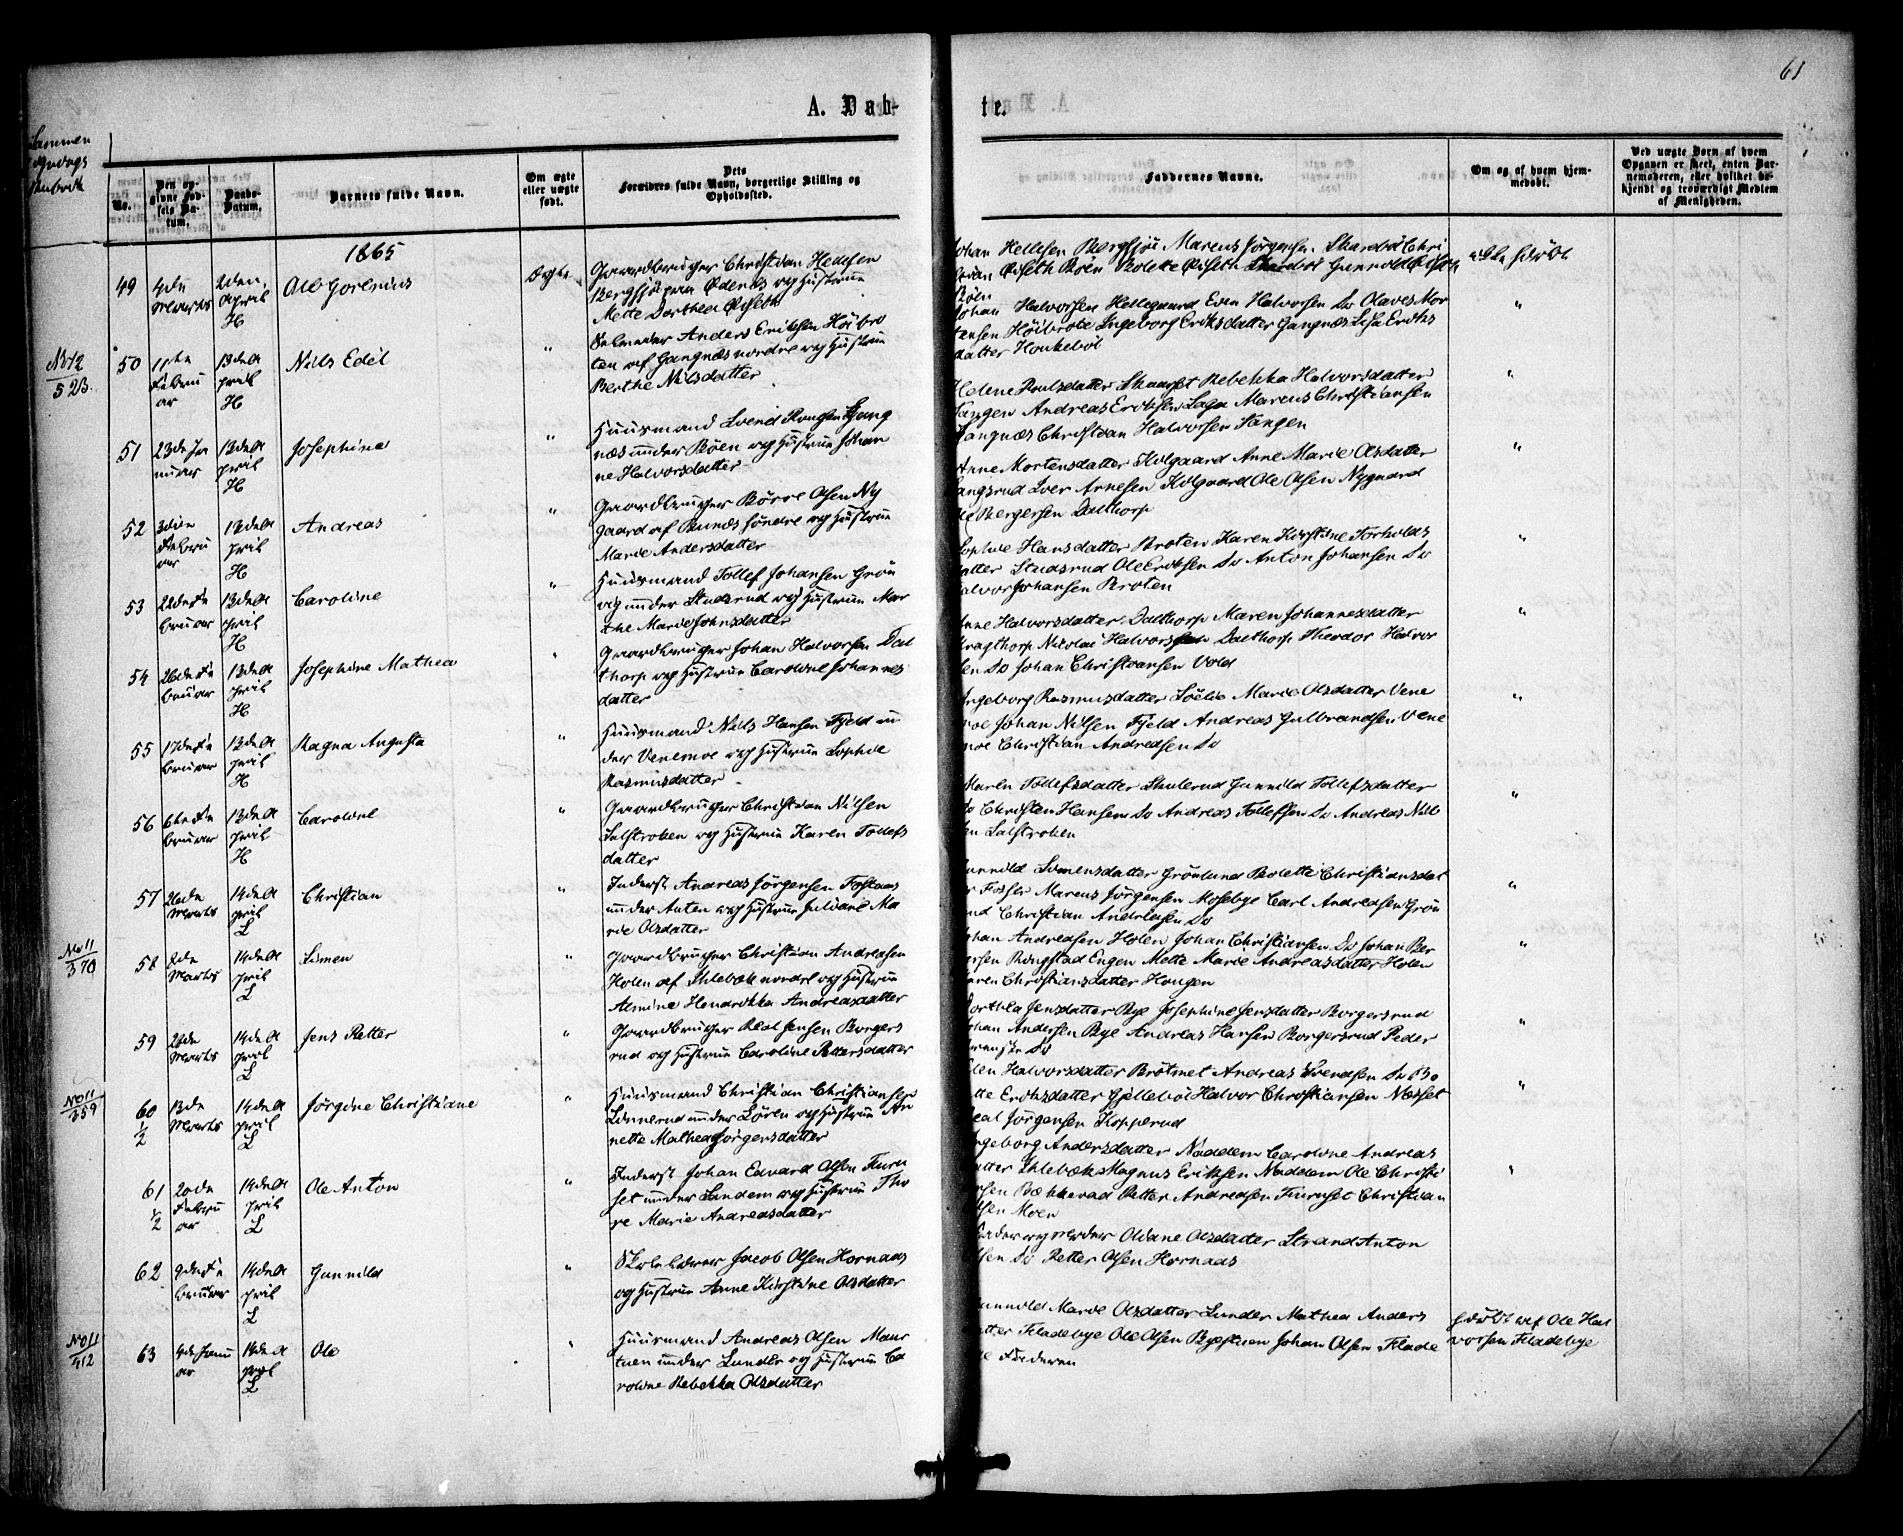 61
A. Dab-
te.
Sammen
No.
Den op-
givne Fød-
sels Da-
tum.
Daabs-
Datum.
Barnets fulde Navn.
Om ægte
eller uægte
født.
Dets
Forældres fulde Navn, borgerlige Stilling og
Opholdssted.
Faddernes Navne.
Om og af hvem hjem-
medøbt.
Ved uægte Børn af hvem
Opgaven er skeet, enten Bar-
nemoderen, eller hvilket be-
kjendt og troværdigt Medlem
af Menigheden.
1865
49
4de
Marts
2den
April
H
Ole
Ægte
Gaardbruger Christian Hellesen
Bergsjø og Hustrue
Mette Dorthea Øiseth
Johan Hellesen Bergsjø Marcus Jørgensen
Øiseth Bøen Bolette Øiseth Gunnild
Bøen
ikke hdøbt
No 12
523.
50
11te
Februar
13de A
pril
H
Nils Edel
"
Anders Eriksen Høibro
ten af Gangnæs nordre og Hustrue
Berthe Nilsdatter
Johan Halvorsen Hellegaard Even Halvorsen Do Olaves Mor
tensen Høibrote Ingeborg Eriksdatter Gangnæs Lisa Eriks
datter Honkebøl
"
51
23de Ja
nuar
13de A
pril
H
Josephine
"
Huusmand Svend Gang
næs under Bøen og Hustrue Johan
ne Halvorsdatter
Helene Poulsdatter Rebekka Halvorsdatter
Tangen Andreas Eriksen Marcus Christiansen
Gangnæs Christian Halvorsen Tangen
"
52
3die
Febru
ar
13de A
pril
H
Andreas
"
Gaardbruger Børre Olsen Ny
gaard af Bunæs søndre og Hustrue
Marie Andersdatter
Anne Mortensdatter Holgaard Anne Marie Olsdatter
Iver Arnesen Holgaard Ole Olsen Nygaard
Ole Bergersen Dalthorp
"
53
22de Fe
bruar
13de A
pril
H
Caroline
"
Huusmand Tollef Johansen Grøn
vig under Studsrud og Hustrue Mar
the Marie Johnsdatter
Sophie Hansdatter Broten Karen Kirstine Torholds
datter Studsrud Ole Eriksen Do Anton Johansen Do
Halvor Johansen Broten
"
54
26de Fe
bruar
13de A
pril
H
Josephine Mathea
"
Gaardbruger Johan Halvorsen Dal
thorp og Hustrue Caroline Johannes
datter
Anne Halvorsdatter Dalthorp Maren Johannesdatter
Kragthorp Nicolai Halvorsen Dalthorp Theodor Halvor
sen Do Johan Christiansen Vold
"
55
17de Fe
bruar
13de A
pril
H
Ragna Augusta
"
Huusmand Nils Hansen Fjeld un
der Venemoe og Hustrue Sophie
Rasmusdatter
Ingeborg Rasmusdatter Solie Marie Olsdatter Vene
moe Johan Nilsen Fjeld Andreas Gulbrandsen Vene
moe Christian Andreasen Do
"
56
6te Fe
bruar
13de A
pril
H
Caroline
"
Gaardbruger Christian Nilsen
Salstroken og Hustrue Karen Tollefs
datter
Maren Tollefsdatter Skulerud Gunnild Tollefsdatter
Do Christen Hansen Do Andreas Tollefsen Do Andreas Nil
sen Salstroken
"
57
26de
Marts
14de A
pril
L
Christian
"
Inderst Andreas Jørgensen Fossaas
under Anten og Hustrue Juliane Ma
rie Olsdatter
Gunnild Simensdatter Grønlund Bolette Christiansdat
ter Fosser Marcus Jørgensen Mosebye Carl Andreasen Grøn
lund Christian Andreasen Do
"
No 11
370
58
2de
Marts
14de A
pril
L
Simen
"
Gaardbruger Christian Andreasen
Holen af Ihlebæk nordre og Hustrue
Almine Hendrikka Andreasdatter
Johan Andreasen Holen Johan Christiansen Do Johan Ber
gersen Ringstad Engen Mette Marie Andreasdatter Holen
Karen Christiansdatter Hougen
"
59
28de
Marts
14de A
pril
L
Jens Petter
"
Gaardbruger Real Jensen Borgers
rud og Hustrue Caroline Pettersdatter
Dorthea Jensdatter Bye Josephine Jensdatter Borgersrud
Johan Andersen Bye Andreas Hansen Borgersrud Peder
Svenske Do
"
No 11
359
60
1/2
13de
Marts
14de A
pril
L
Jørgine Christiane
"
Huusmand Christian Christiansen
Linnerud under Søren og Hustrue An
nette Mathea Jørgensdatter
Elen Halvorsdatter Brøtmet Andreas Svendsen Do Bo
lette Eriksdatter Gjellebøl Halvor Christiansen Næsset
Real Jørgensen Kopperud
"
61
1/2
20de
Febru
ar
14de A
pril
L
Ole Anton
"
Inderst Johan Edvard Olsen Furu
set under Sandem og Hustrue Tho
re Marie Andreasdatter
Ingeborg Andersdatter Naddem Caroline Andreas
datter Ihlebæk Magnus Eriksen Naddem Ole Christi
ansen Bækkevad Petter Andreasen Furuset Christian
Olsen Moen
"
62
9de Fe
bruar
14de A
pril
L
Gunnild
"
Skolelærer Jacob Olsen Hornaas
og Hustrue Anne Kirstine Olsdatter
Fader og Moder Oldine Olsdatter Strand Anton
Olsen Do Petter Olsen Hornaas
No 11
412
63
4de Janu
ar
14de A
pril
L
Ole
"
Huusmand Andreas Olsen Maur
tuen under Lunder og Hustrue Ca
roline Rebekka Olsdatter
Gunnild Marie Olsdatter Lunder Mathea Anders
datter Fladebye Ole Olsen Johan Olsen Flade
bye Faderen
hdøbt af Ole Hal
vorsen Fladebye